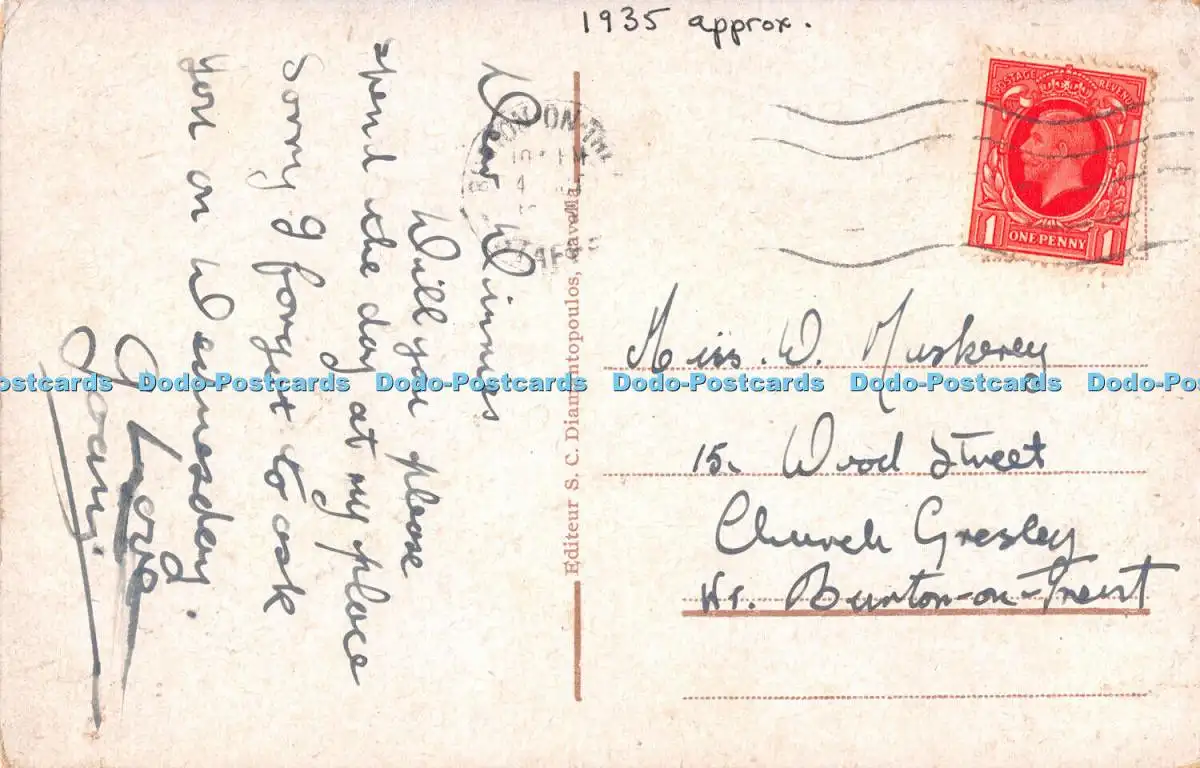 1935 approx.
Dear Winnos
Will you please
spend the day at my place
Sorry I forgot to ask
you on Wednesday.
Love
Joany
Editeur S. C. Diamantopoulos, Cavalla.
POSTAGE REVENUE
1 ONE PENNY 1
Miss. W. Muskerey
15. Wood Street
Church Gresley
Nr. Burton-on-Trent
Dodo-Postcards Dodo-Postcards Dodo-Postcards Dodo-Postcards Dodo-Postcards Dodo-Postcards